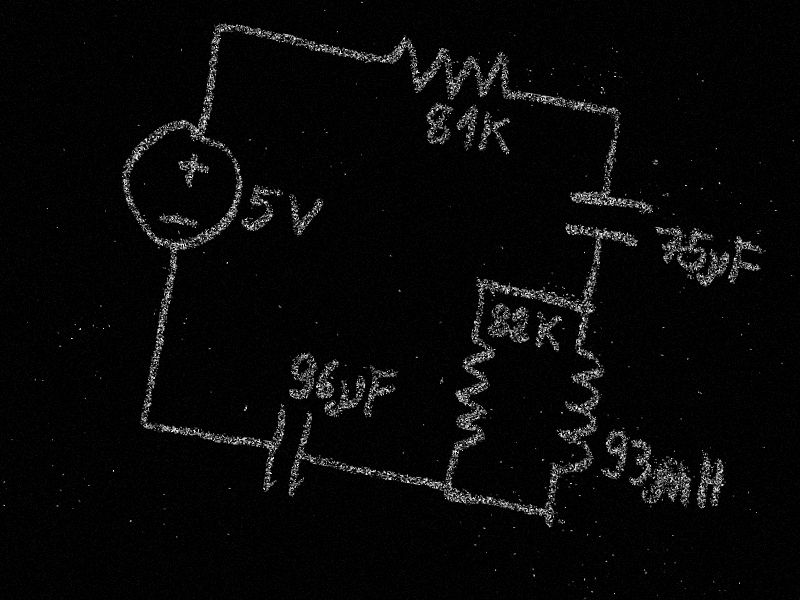 81K
+
5V
−
75µF
82K
96µF
93mH